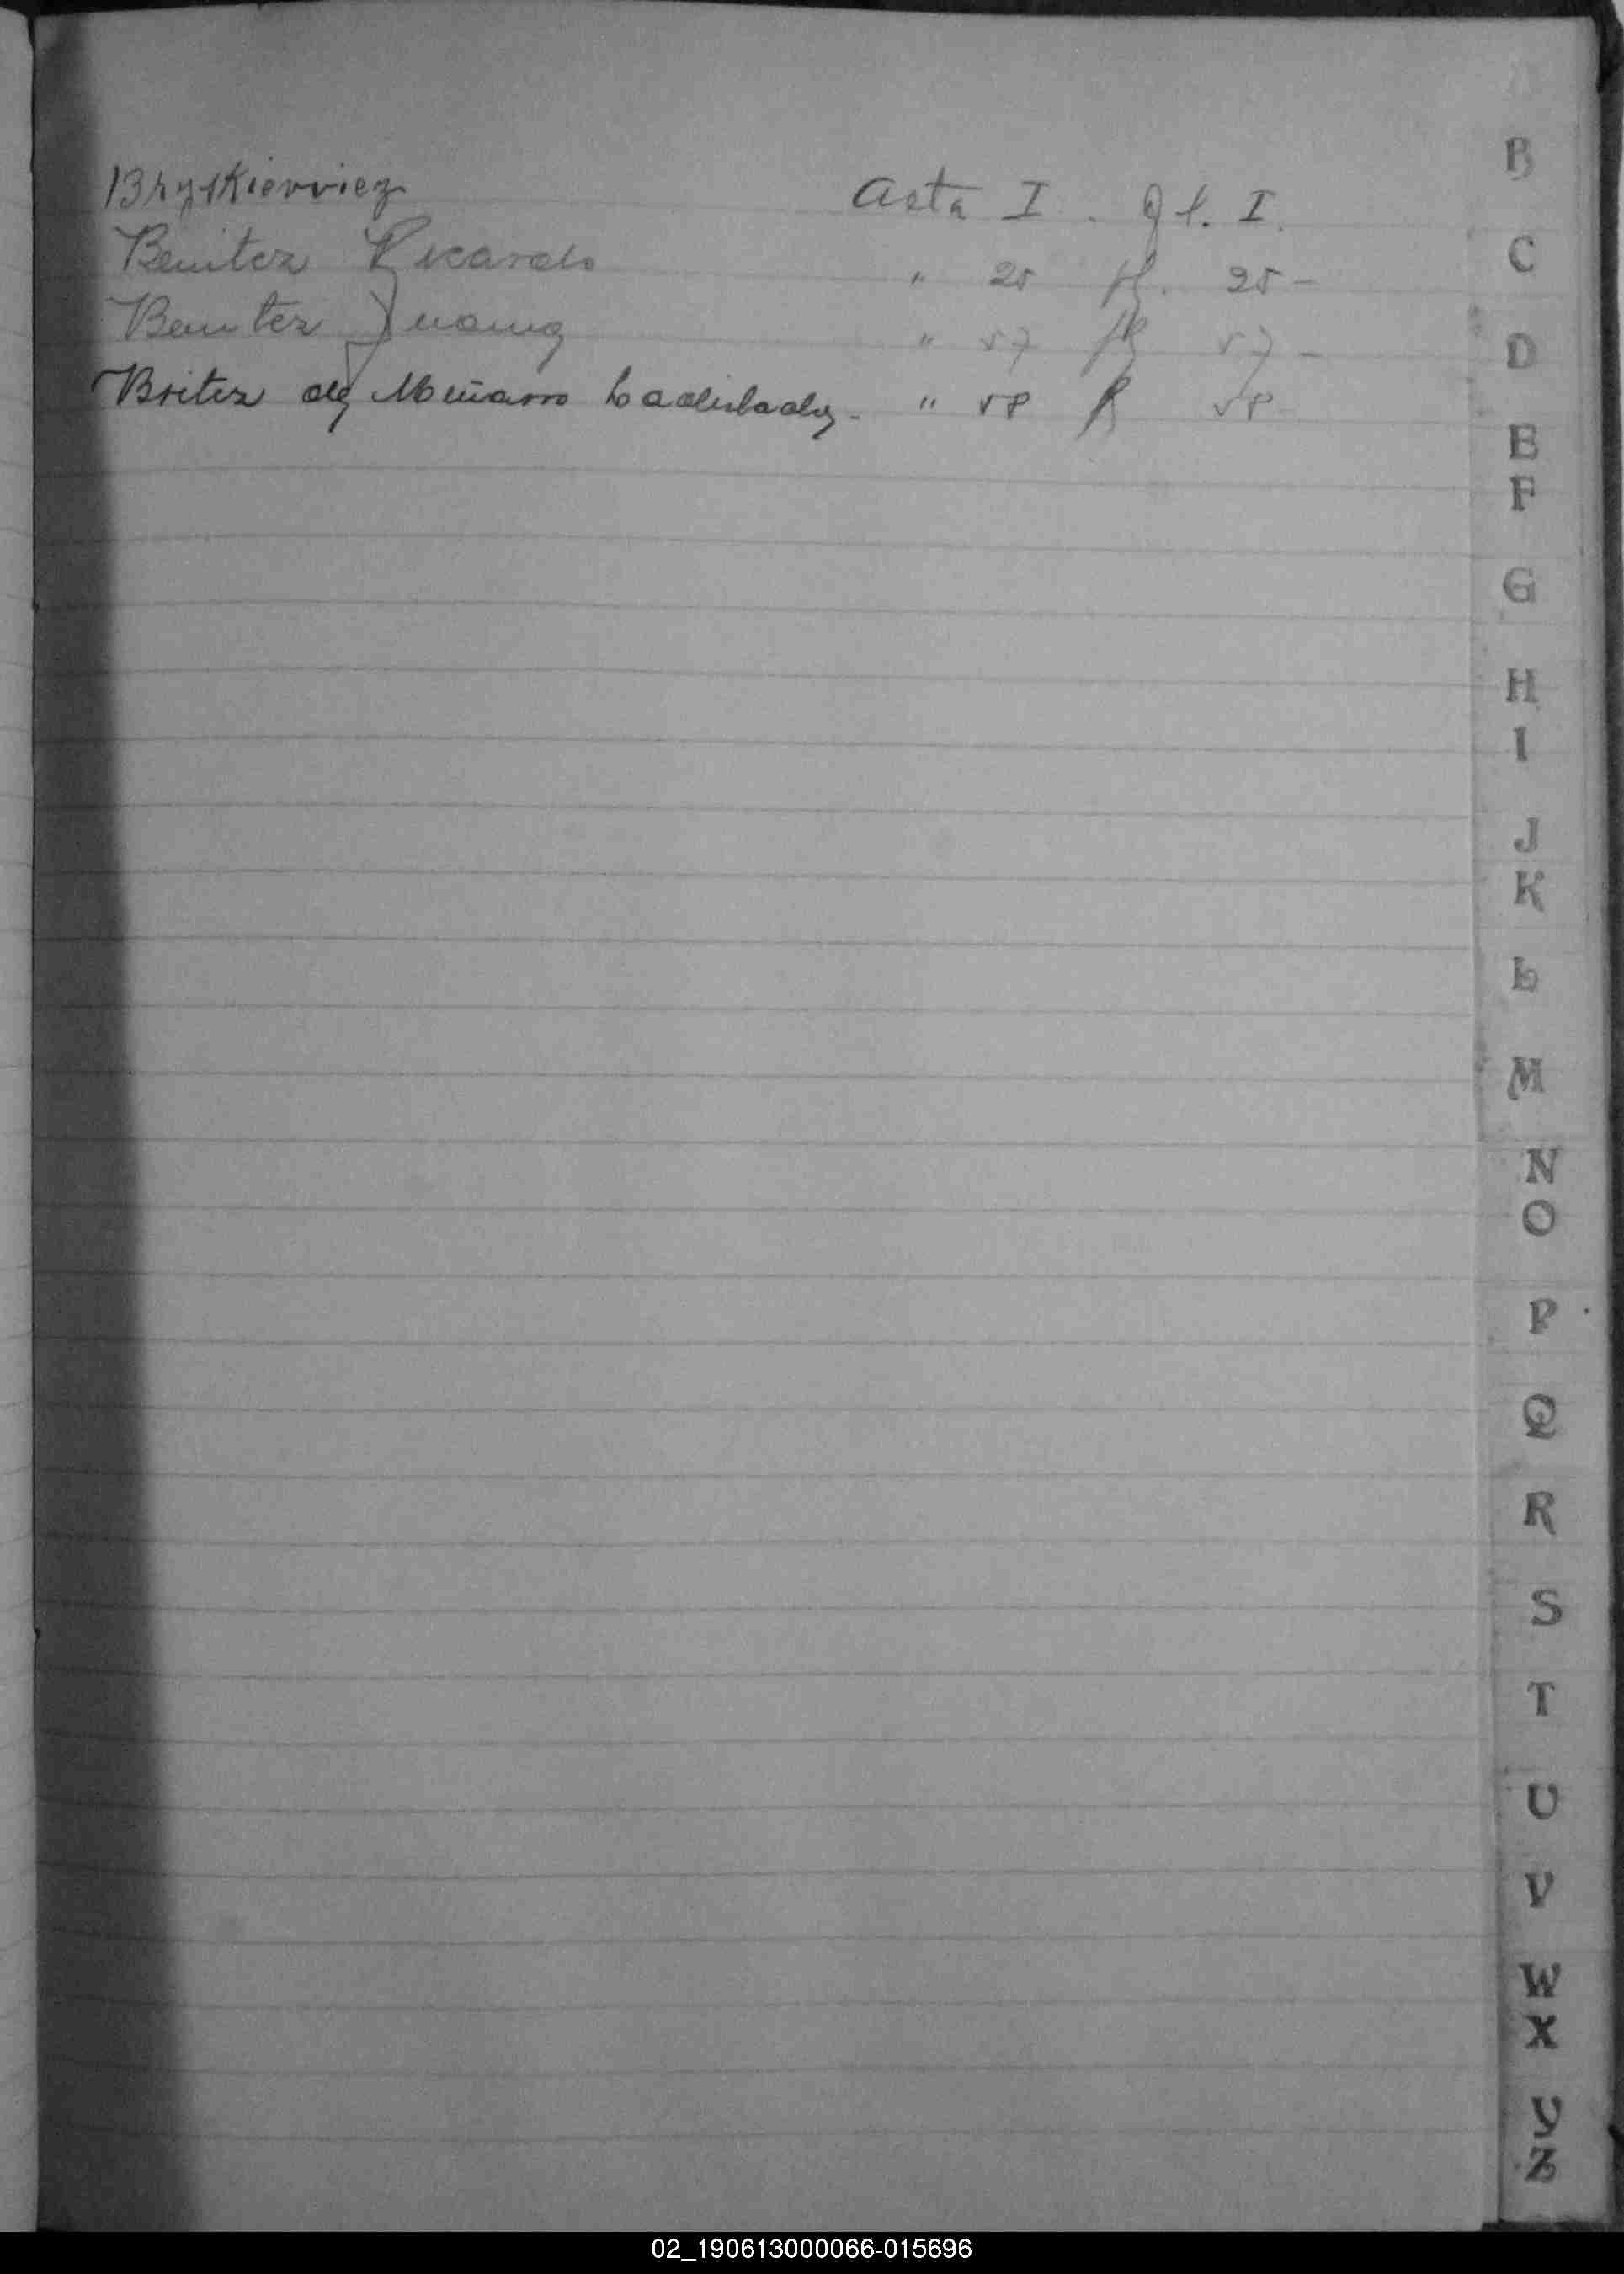 Bryskierviez Acta I. fl. I.
Benitez Ricardo " 25 fl. 25-
Benitez Juana " 57 fl 57-
Britez de Ladislada. " 58 fl 58
B
C
D
E
F
G
H
I
J
K
L
M
N
O
P
Q
R
S
T
U
V
W
X
Y
Z
02_190613000066-015696